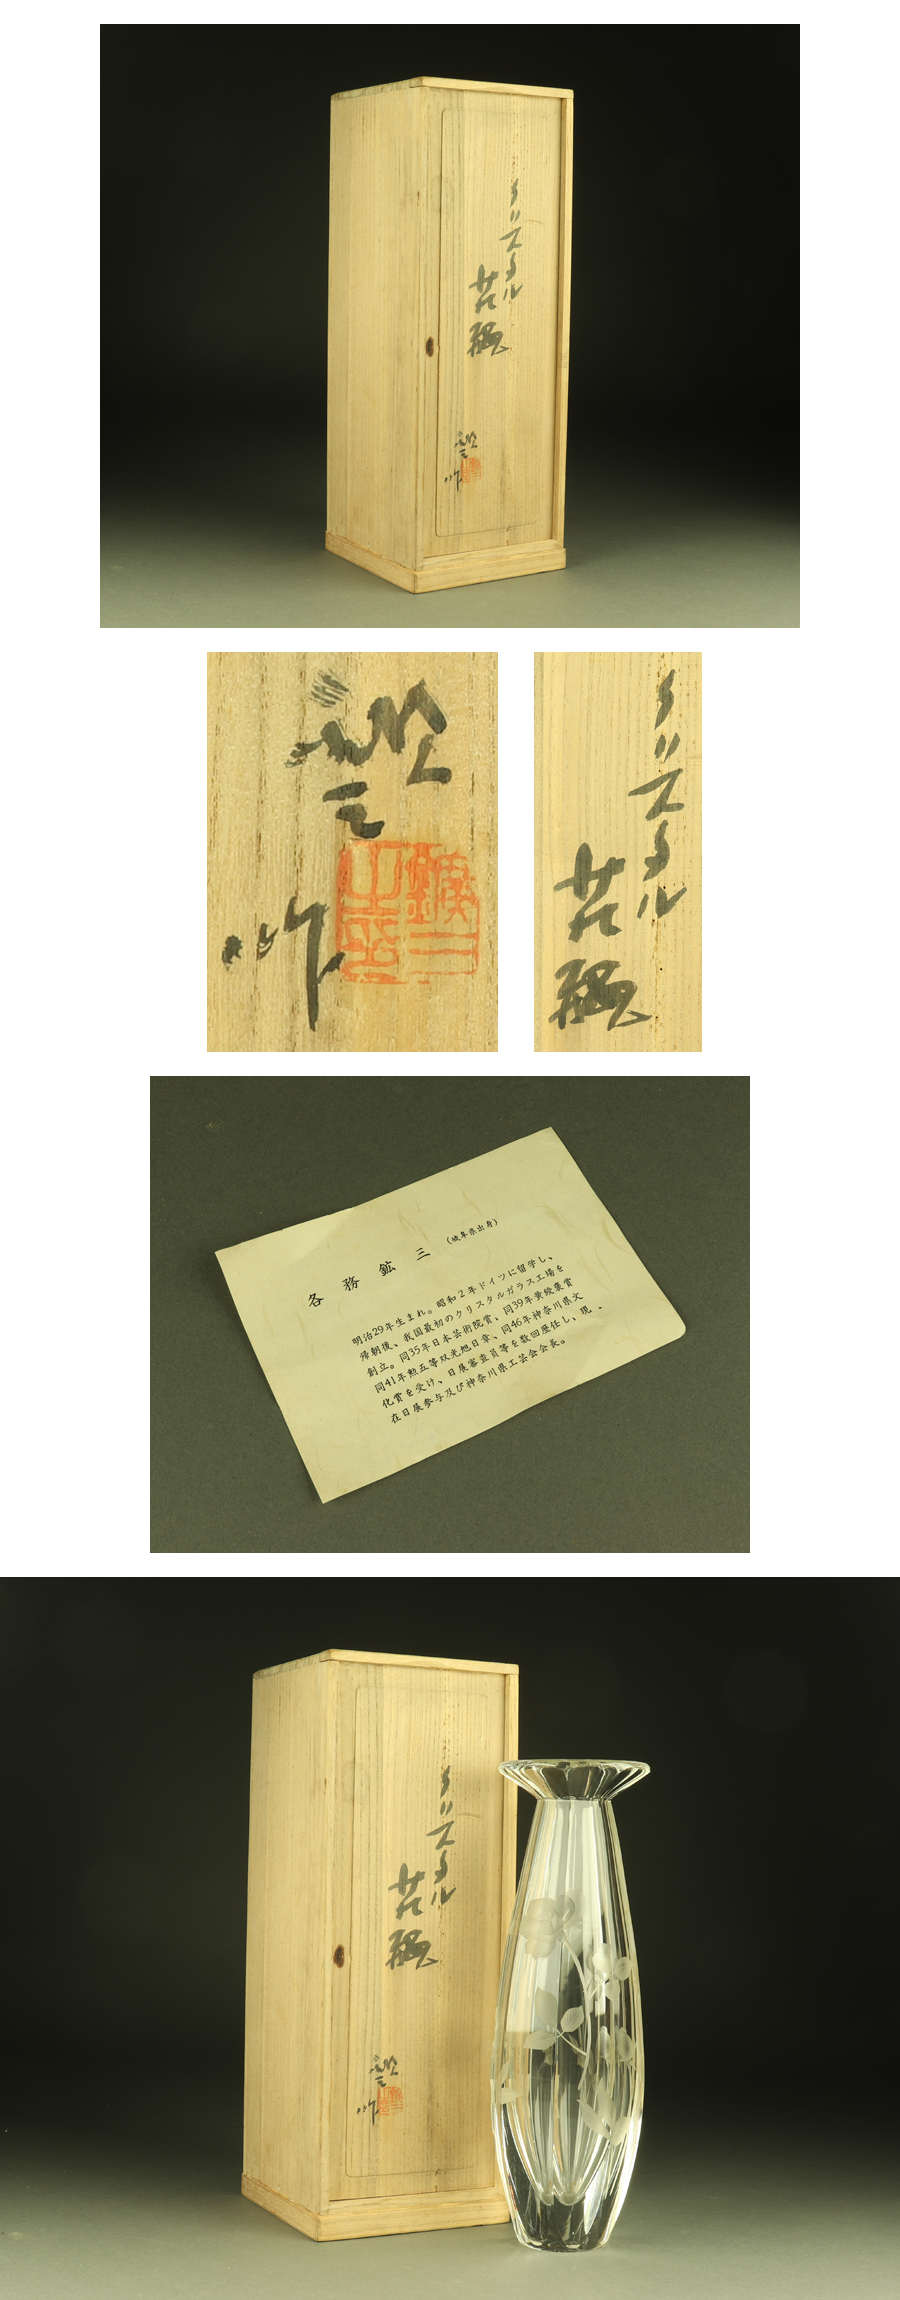 クリスタル
花瓶
鑛三
作
鑛三
作
クリスタル
花瓶
各務鉱三 (岐阜県出身)
明治29年生まれ。昭和2年ドイツに留学し、
帰朝後、我国最初のクリスタルガラス工場を
創立。同35年日本芸術院賞、同39年黄綬褒賞
同41年勲五等双光旭日章、同46年神奈川県文
化賞を受け、日展審査員等を数回歴任し、現
在日展参与及び神奈川県工芸会会長。
クリスタル
花瓶
鑛三
作